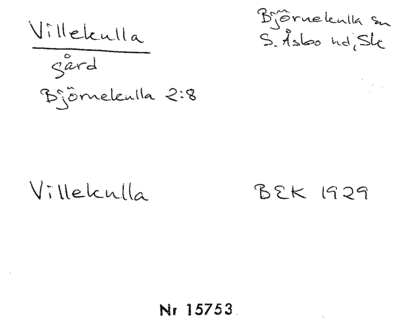 Villekulla
gård
Björnekulla 2:8
Björnekulla sn
S. Åsbo hd, Sk
Villekulla BEK 1929
Nr 15753